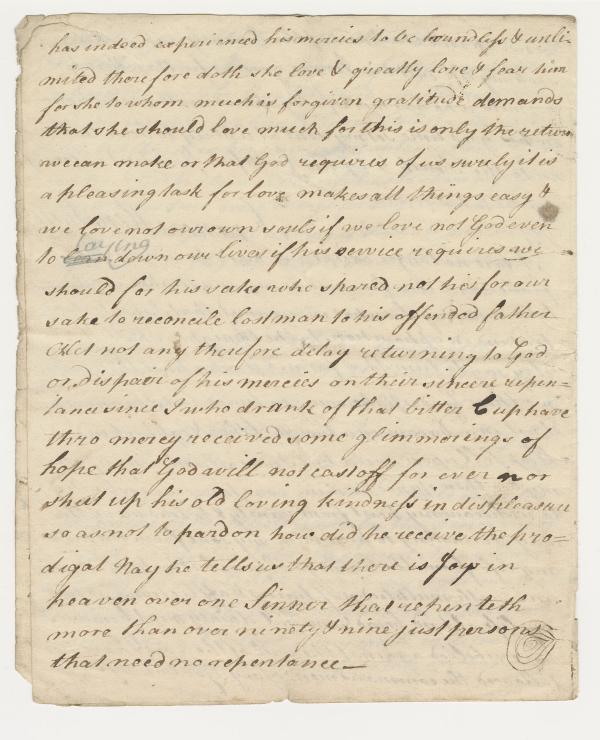 has indeed experienced his mercies to be boundless & unli-
mited therefore doth she love & greatly love & fear him
for she to whom much is forgiven gratitude demands
that she should love much for this is only the return
we can make or that God requires of us surely it is
a pleasing task for love makes all things easy &
we love not our own souls if we love not God even
laying
to down our lives if his service requires we
should for his sake who spared not his for our
sake to reconcile lost man to his offended father
let not any therefore delay returning to God
or dispair of his mercies on their sincere repen=
tance since I who drank of that bitter Cup have
thro mercy received some glimmorings of
hope that God will not cast off for ever nor
shut up his old loving kindness in displeasure
so as not to pardon how did he receive the pro=
digal Nay he tells us that there is Joy in
heaven over one Sinner that repenteth
more than over ninety & nine just persons
that need no repentance—